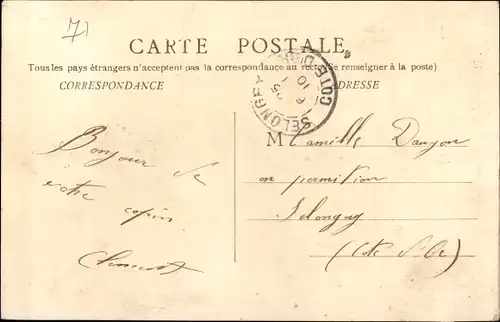 71
CARTE POSTALE
Tous les pays étrangers n'acceptent pas la correspondance au recto (Se renseigner à la poste)
CORRESPONDANCE
ADRESSE
SELONGEY
COTE D'OR
10 1
6 05
Bonjour de
votre
copin
Clement
M Camille Danjon
en permition
Selongey
(Côte d'Or)